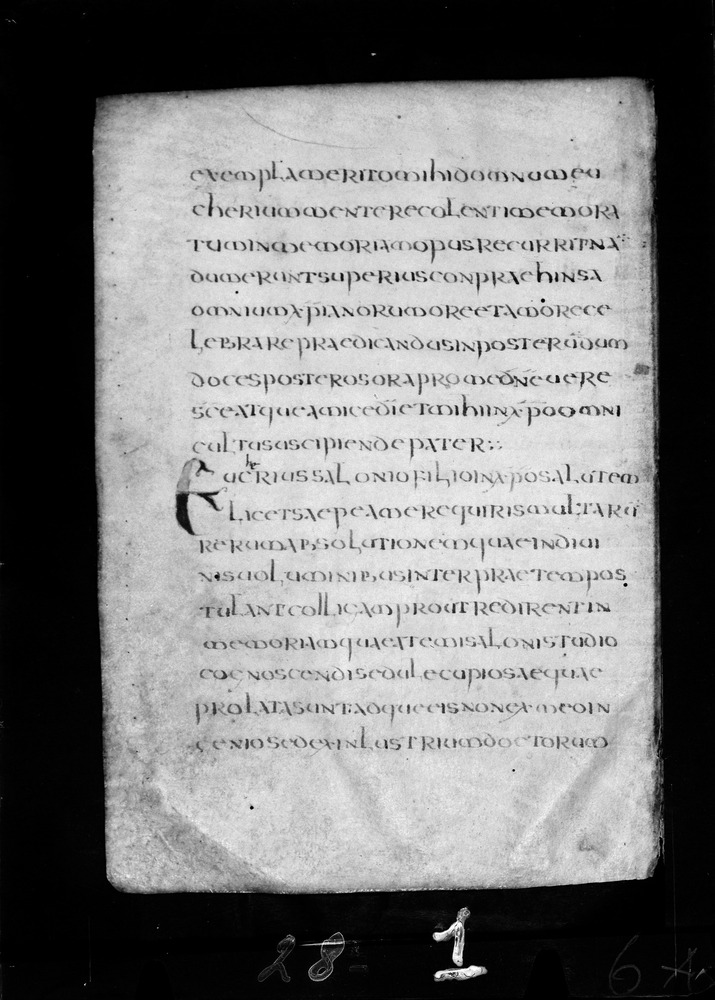 exemplameritomihidomnumeu
cheriummenterecolentimemora
tuminmemoriamopusrecurritna
dumeruntsuperiusconpraehinsa
omniumxpianorumoreetamorece
lebrarepraedicandusinposterūdum
docesposterosorapromedneuere
sceatqueamicedietmihiinxpoomni
cultususcipiendepater
eucheriussaloniofilioinxposalutem
licetsaepeamerequirismultarū
rerumabsolutionemquaeindiui
nisuoluminibusinterpraetempos
tulantcolligamproutredirentin
memoriamquaeatemisalonistudio
cognoscendisedulecupiosaequae
prolatasuntadqueeisnonexmeoin
geniosedexinlustriumdoctorum
28 - 1
6